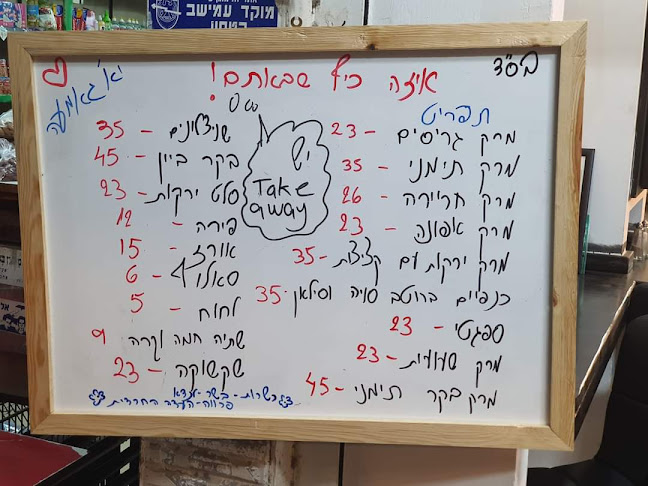 מוקד עמישב
בס"ד
איזה כיף שבאתם!
יא'גאמעה
תפריט
מרק גריסים - 23
מרק תימני - 35
מרק חריירה - 26
מרק אפונה - 23
מרק ירקות עם קציצות - 35
כנפיים ברוטב סויה וסילאן - 35
ספגטי - 23
מרק שעועית - 23
מרק בקר תימני - 45
יש
Take
away
שניצלונים - 35
בקר ביין - 45
סלט ירקות - 23
פירה - 12
אורז - 15
סאלוף - 6
לחוח - 5
שתיה חמה וקרה 9
שקשוקה - 23
כשרות - בשר -
פרווה - העדה החרדית